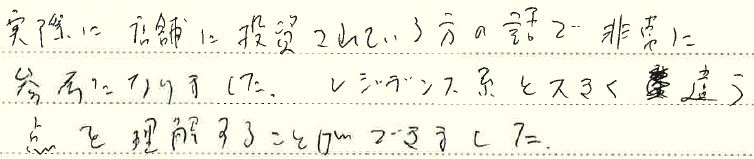 実際に店舗に投資されている方の話で非常に
参考になりました。レジデンス系と大きく違う
点を理解することができました。